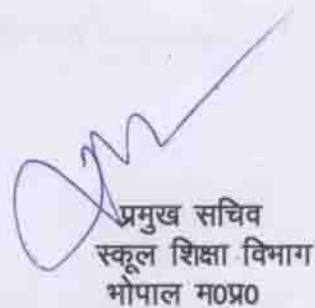 प्रमुख सचिव
स्कूल शिक्षा विभाग
भोपाल म0प्र0